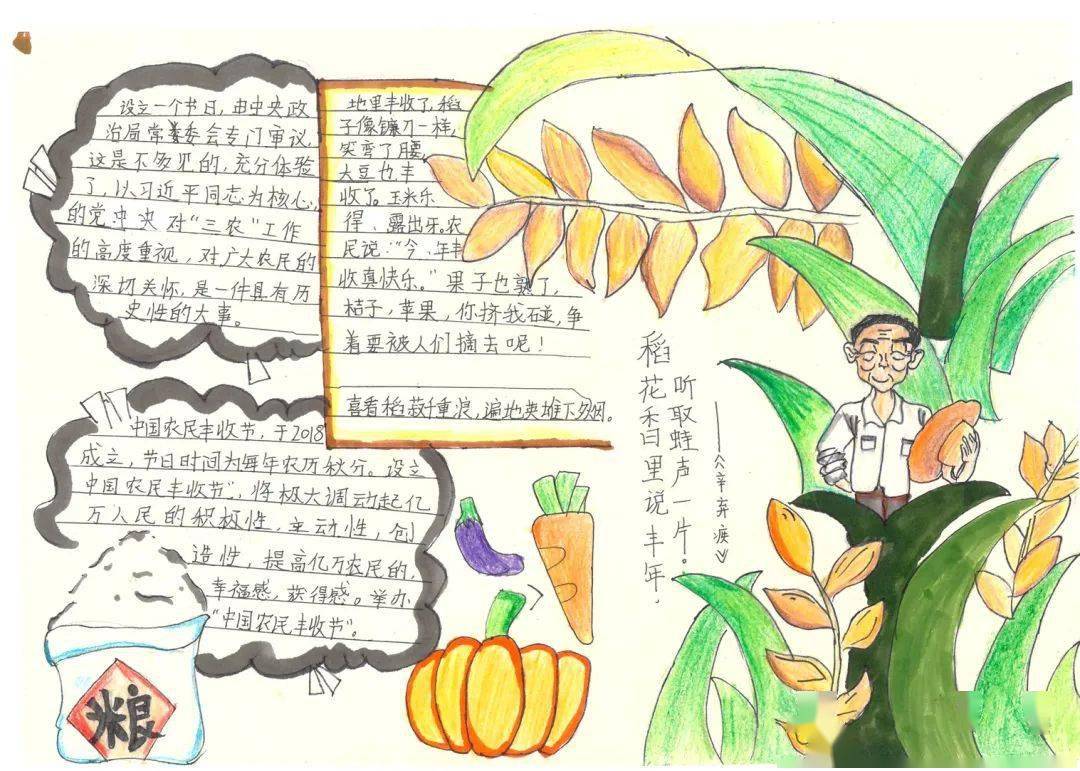 设立一个节日，由中央政
治局常委会专门审议，
这是不多见的，充分体验
了，以习近平同志为核心，
的党中央对“三农”工作
的高度重视，对广大农民的
深切关怀，是一件具有历
史性的大事。
地里丰收了，稻
子像镰刀一样，
笑弯了腰，
大豆也丰
收了。玉米乐
得、露出牙。农
民说：“今、年丰
收真快乐。”果子也熟了，
桔子，苹果，你挤我碰，争
着要被人们摘去呢！
喜看稻菽千重浪，遍地英雄下夕烟。
中国农民丰收节，于2018
成立，节日时间为每年农历秋分。设立
中国农民丰收节”，将极大调动起亿
万人民的积极性，主动性，创
造性，提高亿万农民的，
幸福感，获得感。举办
“中国农民丰收节”。
稻花香里说丰年，
听取蛙声一片！
——《辛弃疾》
粮